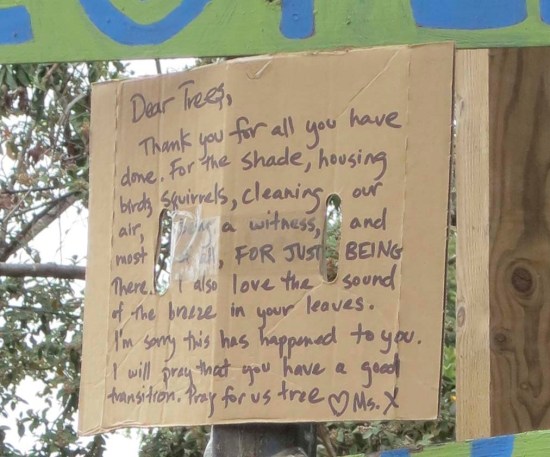 Dear Trees,
Thank you for all you have
done. For the shade, housing
birds squirrels, cleaning our
air, a witness, and
most all, FOR JUST BEING
There. I also love the sound
of the breeze in your leaves.
I'm sorry this has happened to you.
I will pray that you have a good
transition. Pray for us tree ♡ Ms. X